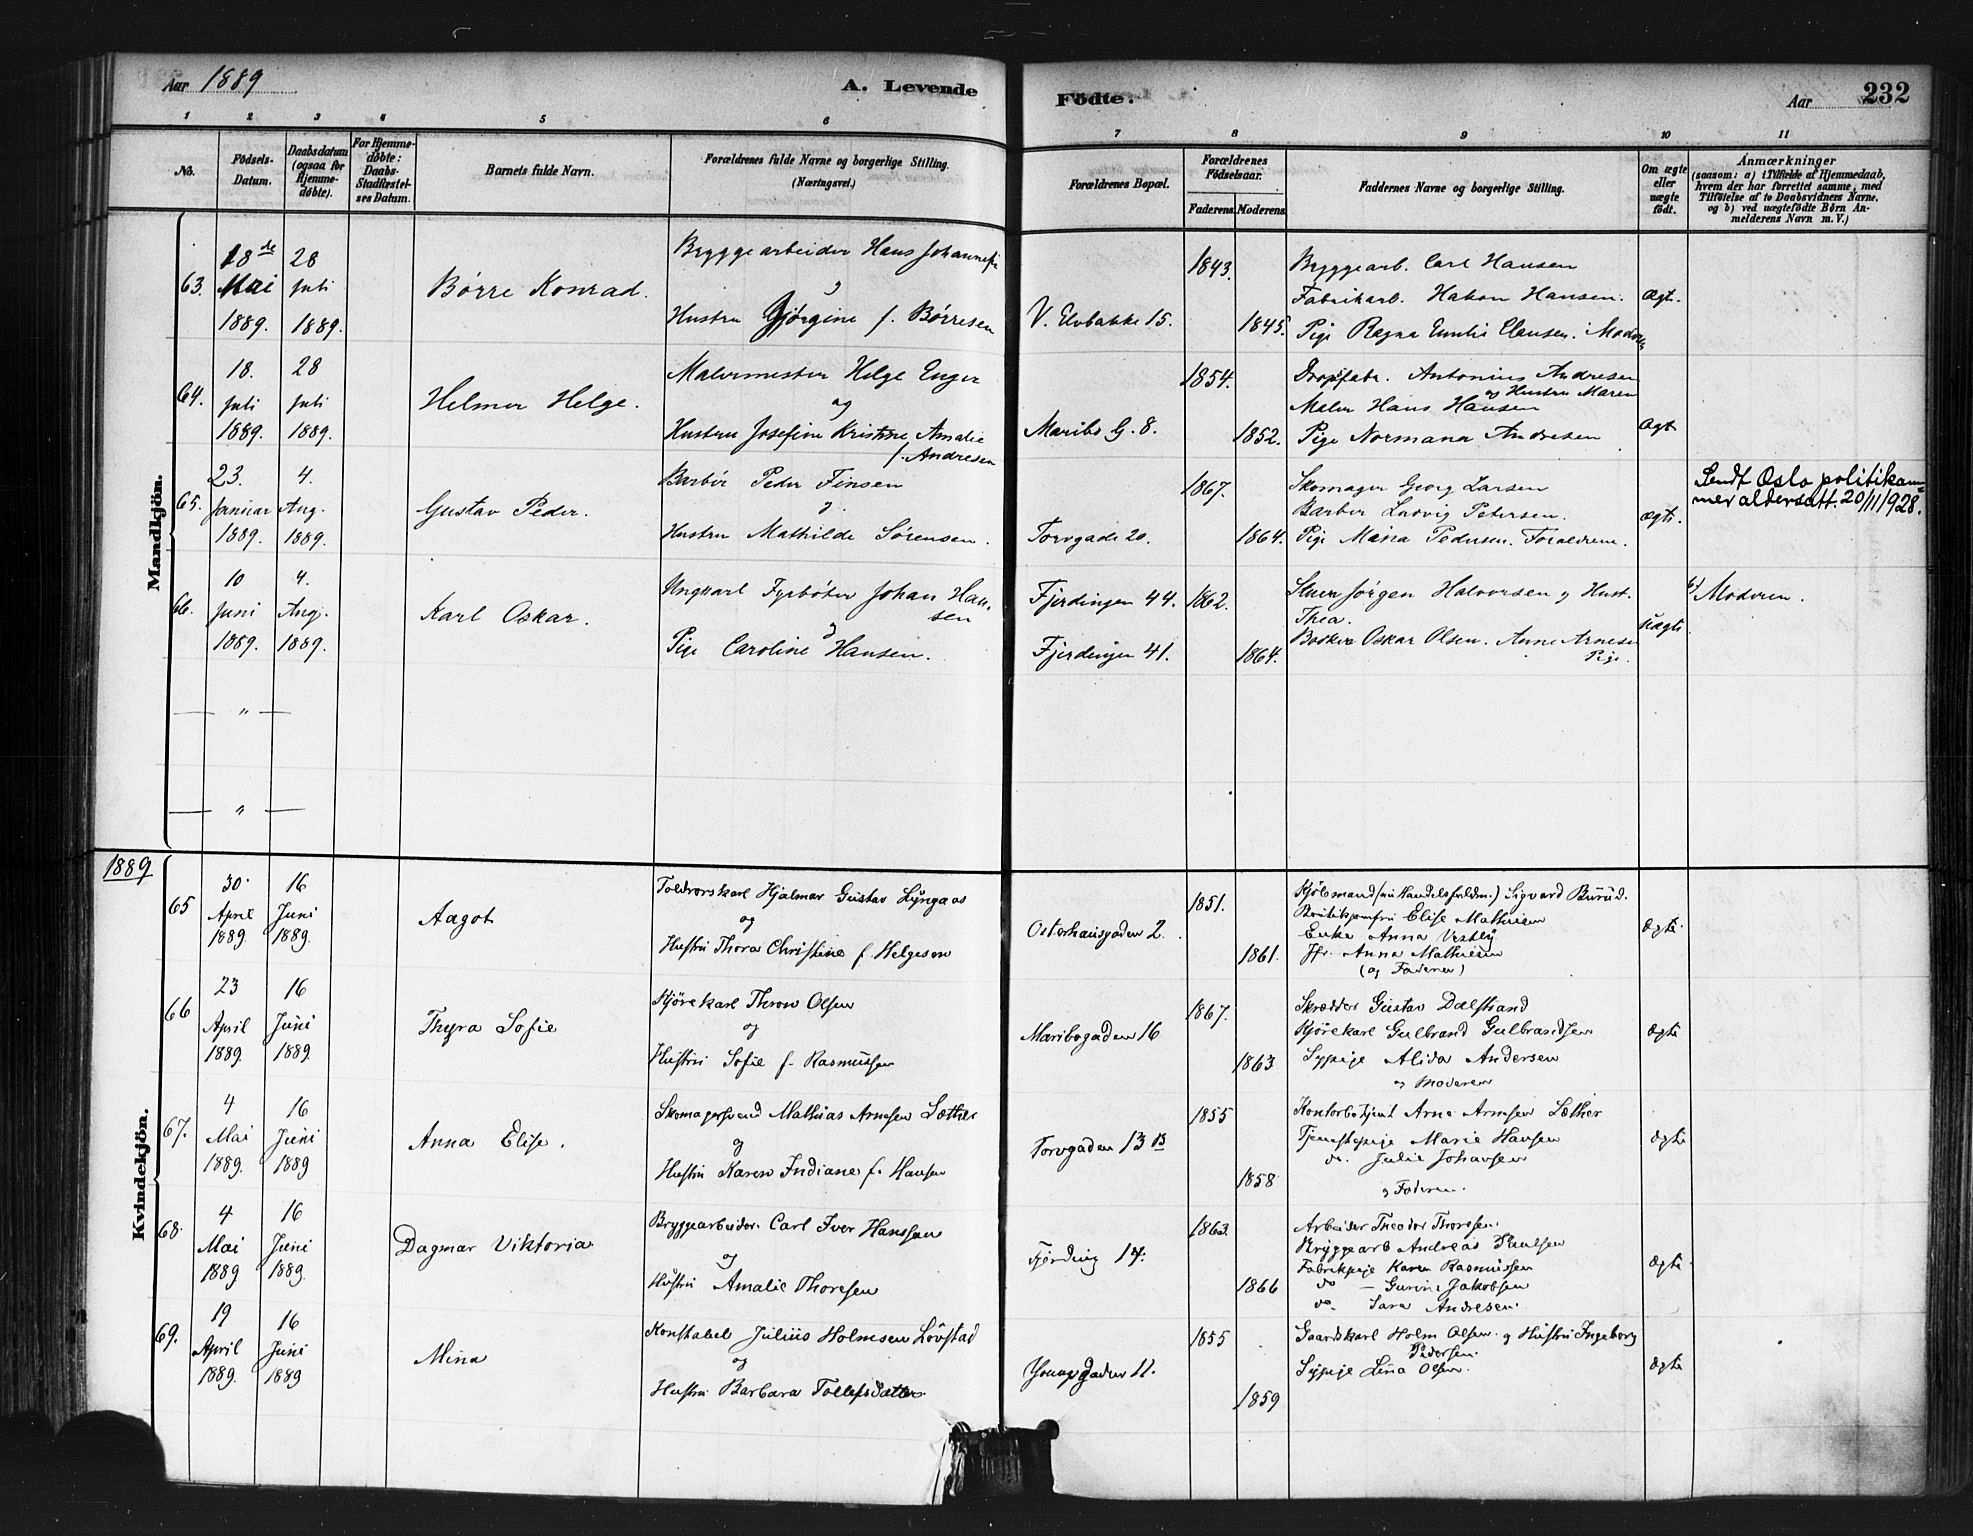 Aar 1889
A. Levende
Fødte.
Aar
232
1 2 3 4 5 6 7 8 9 10 11
No.
Fødsels-Datum.
Daabsdatum (ogsaa for Hjemmedøbte).
For Hjemmedøbte: Daabs-Stadfæstelses Datum.
Barnets fulde Navn.
Forældrenes fulde Navne og borgerlige Stilling. (Næringsvei.)
Forældrenes Bopæl.
Forældrenes Fødselsaar.
Faderens Moderens
Faddernes Navne og borgerlige Stilling.
Om ægte eller uægte født.
Anmærkninger
(saasom: a) i Tilfælde af Hjemmedaab,
hvem der har forrettet samme, med
Tilføielse af to Daabsvidners Navne,
og b) ved uægtefødte Børn Anmelderens Navn m. V.)
Mandkjön.
63.
18de Mai 1889.
28 Juli 1889.
Børre Konrad.
Bryggearbeider Hans Johannes
Hustru Gjørgine f. Børresen
V. Elvbakke 15.
1843.
1845.
Bryggearb. Carl Hansen
Fabrikarb. Hakon Hansen.
Pige Ragna Emilie Clausen. Moderen
Ægt.
64.
18. Juli 1889.
28 Juli 1889.
Helmer Helge.
Malermester Helge Enger
og
Hustru Josefine Kristine Amalie
f. Andresen
Maribo G. 8.
1854.
1852.
Antonius Andresen
og Hustru Maren
Maler Hans Hansen
Pige Normana Andresen
Ægt
65.
23. Januar 1889.
4. Aug. 1889.
Gustav Peder.
Barbér Peder Finsen
Hustru Mathilde Sørensen.
Torvgade 20.
1867.
1864.
Skomager Georg Larsen
Barber Ludvig Petersen.
Pige Mina Pedersen. Forældrene.
ægte.
Sendt Oslo politikam-
mer aldersatt. 20/11/928.
66.
10 Juni 1889.
4. Aug. 1889.
Karl Oskar.
Ungkarl Fyrbøter Johan Han-
sen
Pige Caroline Hansen.
Fjerdingen 44.
Fjerdingen 41.
1862.
1864.
Jørgen Halvorsen og Hust.
Thea.
Oskar Olsen. Anne Arnesen
Pige.
uægte
b) Moderen.
— " —
— " —
1889
Kvindekjön.
65
30. April 1889.
16 Juni 1889.
Aagot
Toldrorskarl Hjalmar Gustav Lyngaas
og
Hustru Thora Christine f. Helgesen
Osterhausgaden 2.
1851.
1861.
Sigvard Burud.
Elise Mathisen
Enke Anna Vestby
Jfr. Anna Mathisen
(og Faderen)
ægte
66
23 April 1889.
16 Juni 1889.
Thyra Sofie
Kjørekarl Thron Olsen
og
Hustru Sofie f. Rasmussen
Maribogaden 16
1867.
1863
Skrædder Gustav Dalstrand
Kjørekarl Gulbrand Gulbrandsen
Sypige Alida Andersen
og Moderen
ægte
67.
4 Mai 1889.
16 Juni 1889
Anna Elise.
Skomagersvend Mathias Arnesen Sæther
og
Hustru Karen Indiane f. Hansen
Torvgaden 13 B
1855
1858
Kontorbetjent Arne Arnesen Sæther
Tjenestepige Marie Hansen
do. Julie Johansen
og Faderen.
ægte
68.
4 Mai 1889
16 Juni 1889.
Dagmar Viktoria
Bryggearbeider. Carl Iver Hanssen
og
Hustru Amalie Thoresen
Fjerding 14.
1863.
1866
Arbeider Theodor Thoresen.
Bryggearb Andreas Paulsen
Fabrikpige Karen Rasmussen
do — Gurine Jakobsen
do. Sara Andresen.
ægte
69.
19 April 1889.
16 Juni 1889
Mina
Konstabel Julius Holmsen Lövstad
og
Hustru Barbara Tollefsdatter
Youngsgaden 11.
1855
1859
Gaardskarl Holm Olsen og Hustru Ingeborg
Pedersen.
Sypige Lina Olsen.
ægte